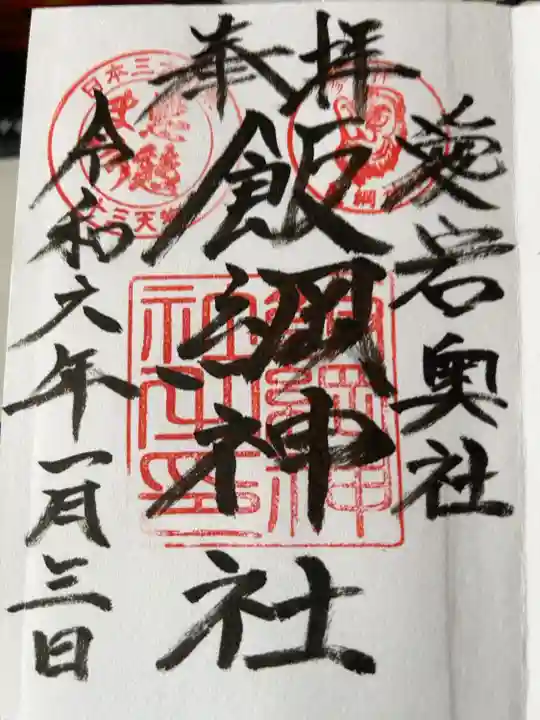 愛宕奥社
奉拝
飯綱神社
令和六年一月三日
日本三大
十三天狗
飯綱神
社之印